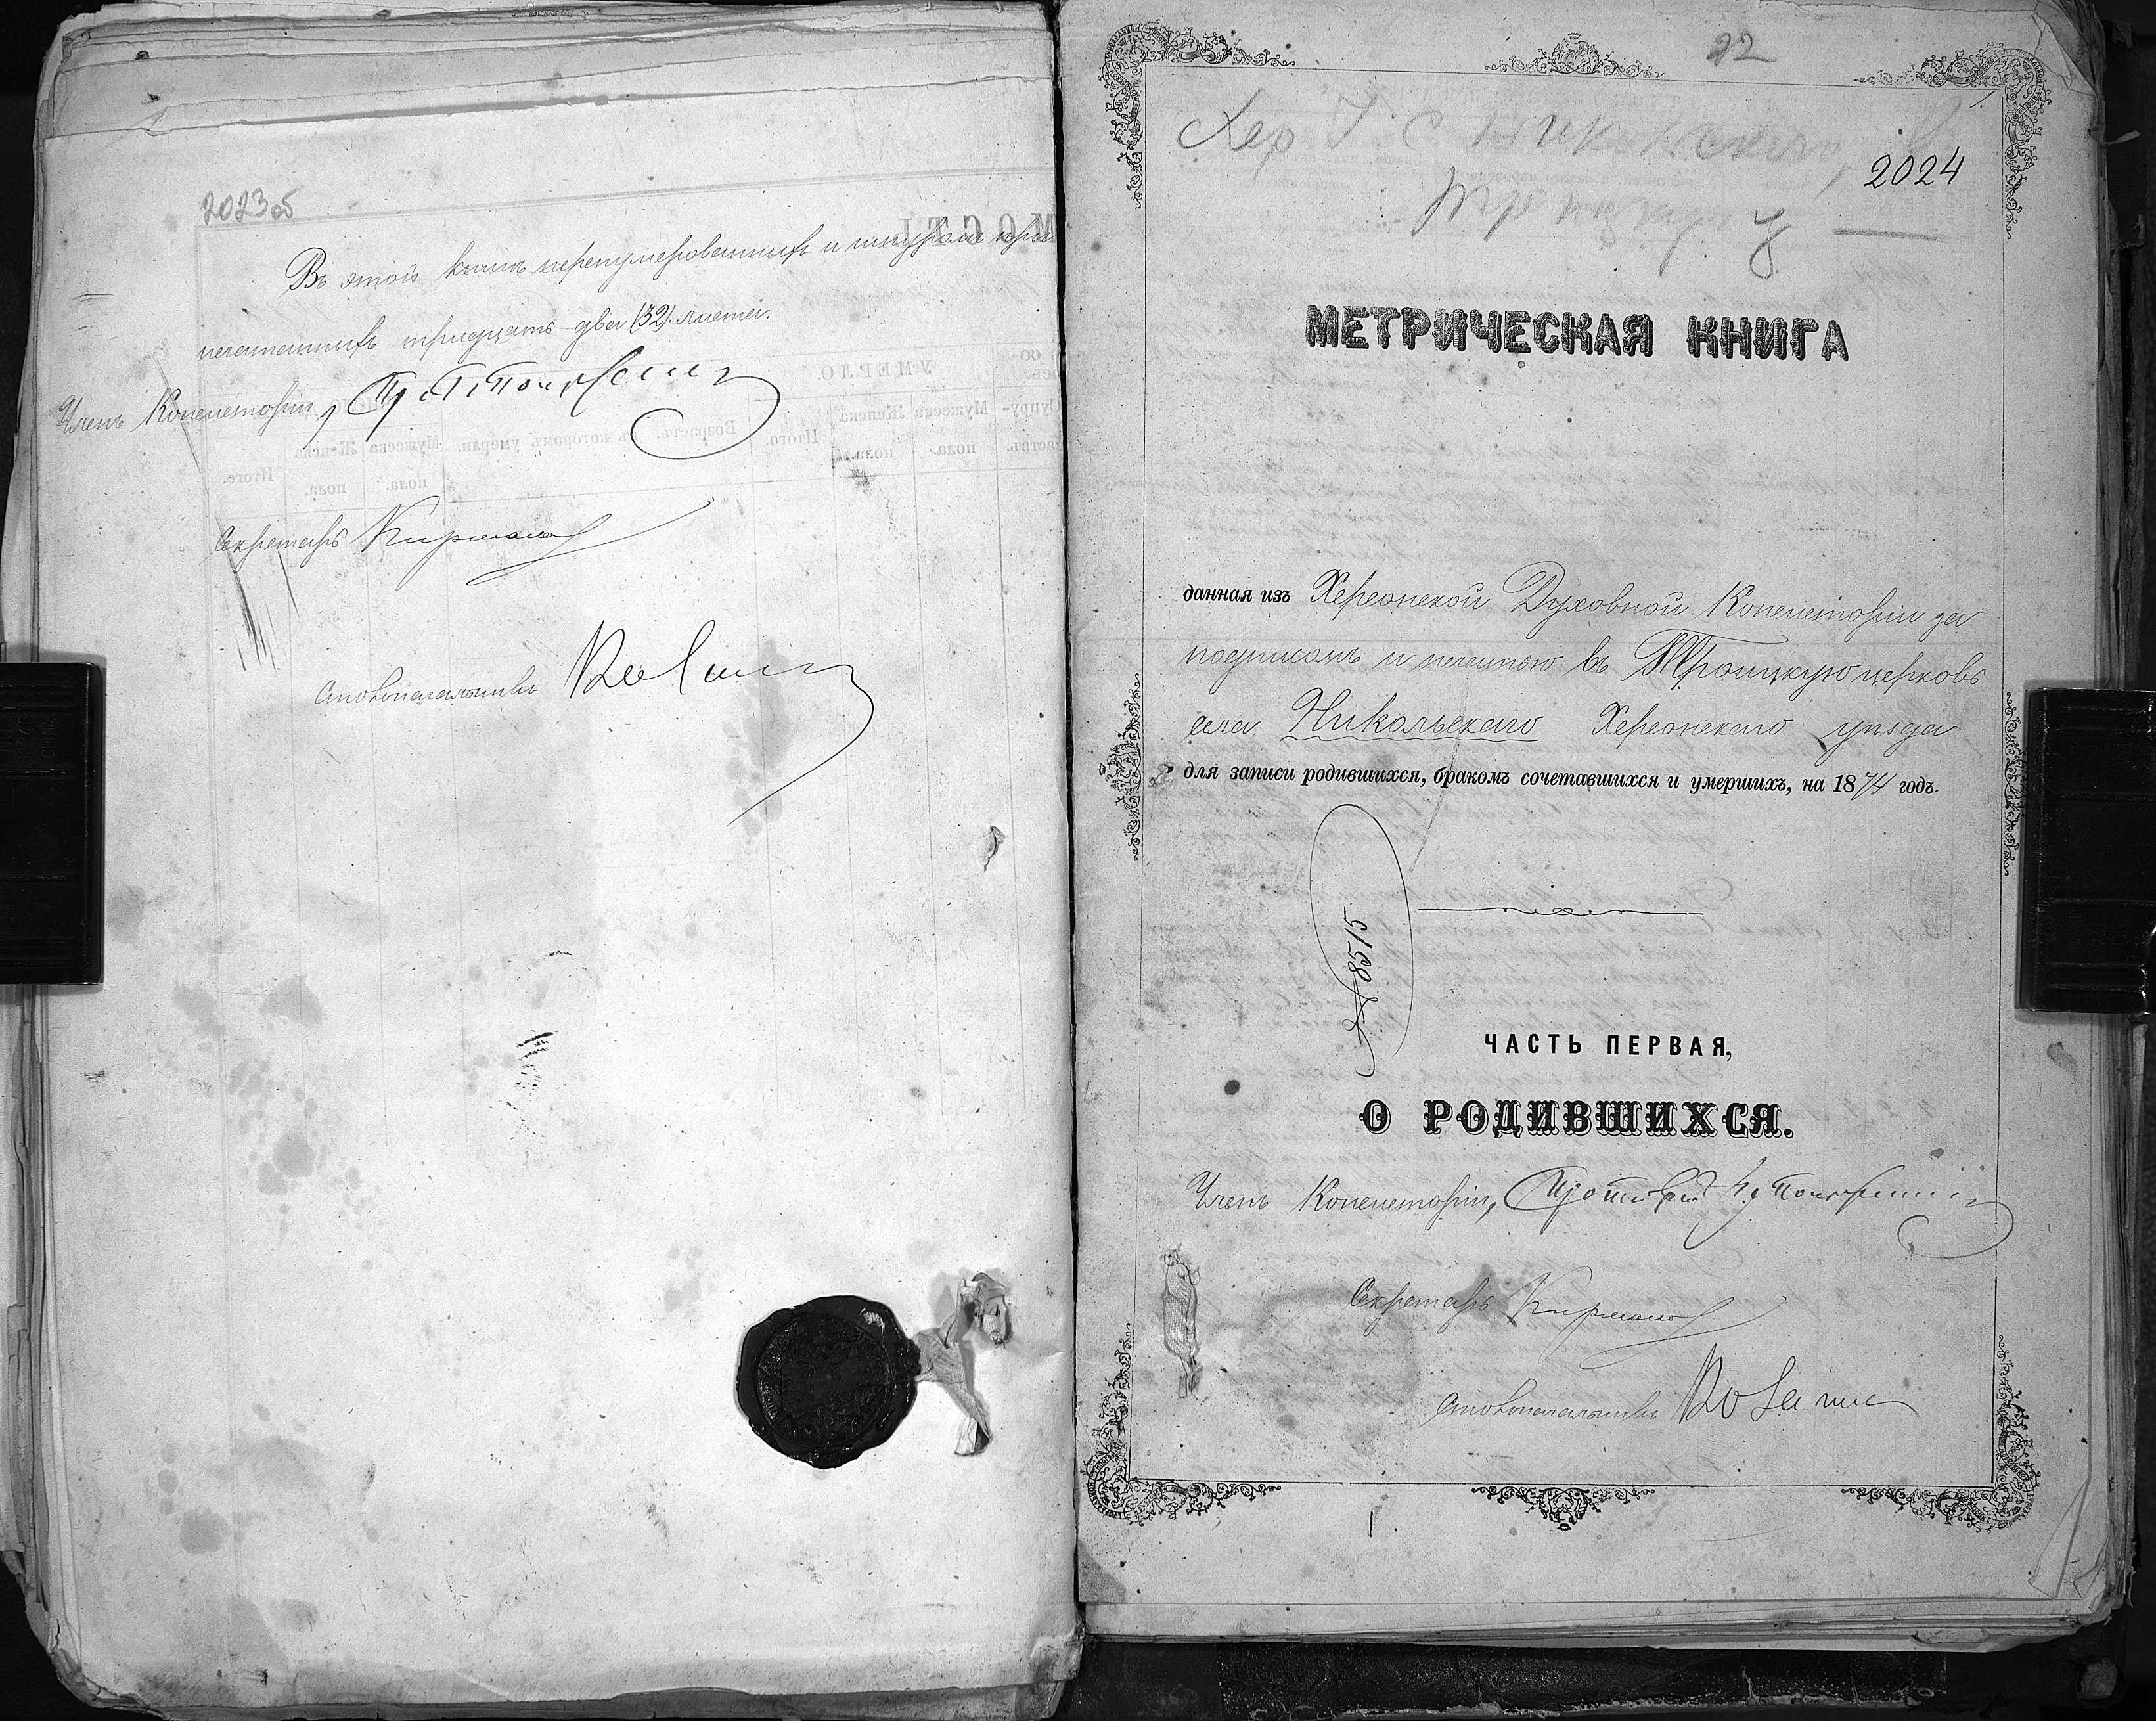 2023об
Въ этой книге перенумерованныхъ и шнуромъ
печатанныхъ тридцать два (32) листа.
Членъ Консисторіи,
Секретарь
Столоначальникъ
22
Хер У. с Никольское
2024
МЕТРИЧЕСКАЯ КНИГА
данная изъ Херсонской Духовной Консисторіи за
подписомъ и печатью въ Троицкую церковь
села Никольскаго Херсонскаго уѣзда
для записи родившихся, бракомъ сочетавшихся и умершихъ, на 1874 годъ.
№ 8515
ЧАСТЬ ПЕРВАЯ,
О РОДИВШИХСЯ.
Членъ Консисторіи, Протоіерей
Секретарь
Столоначальникъ
1.